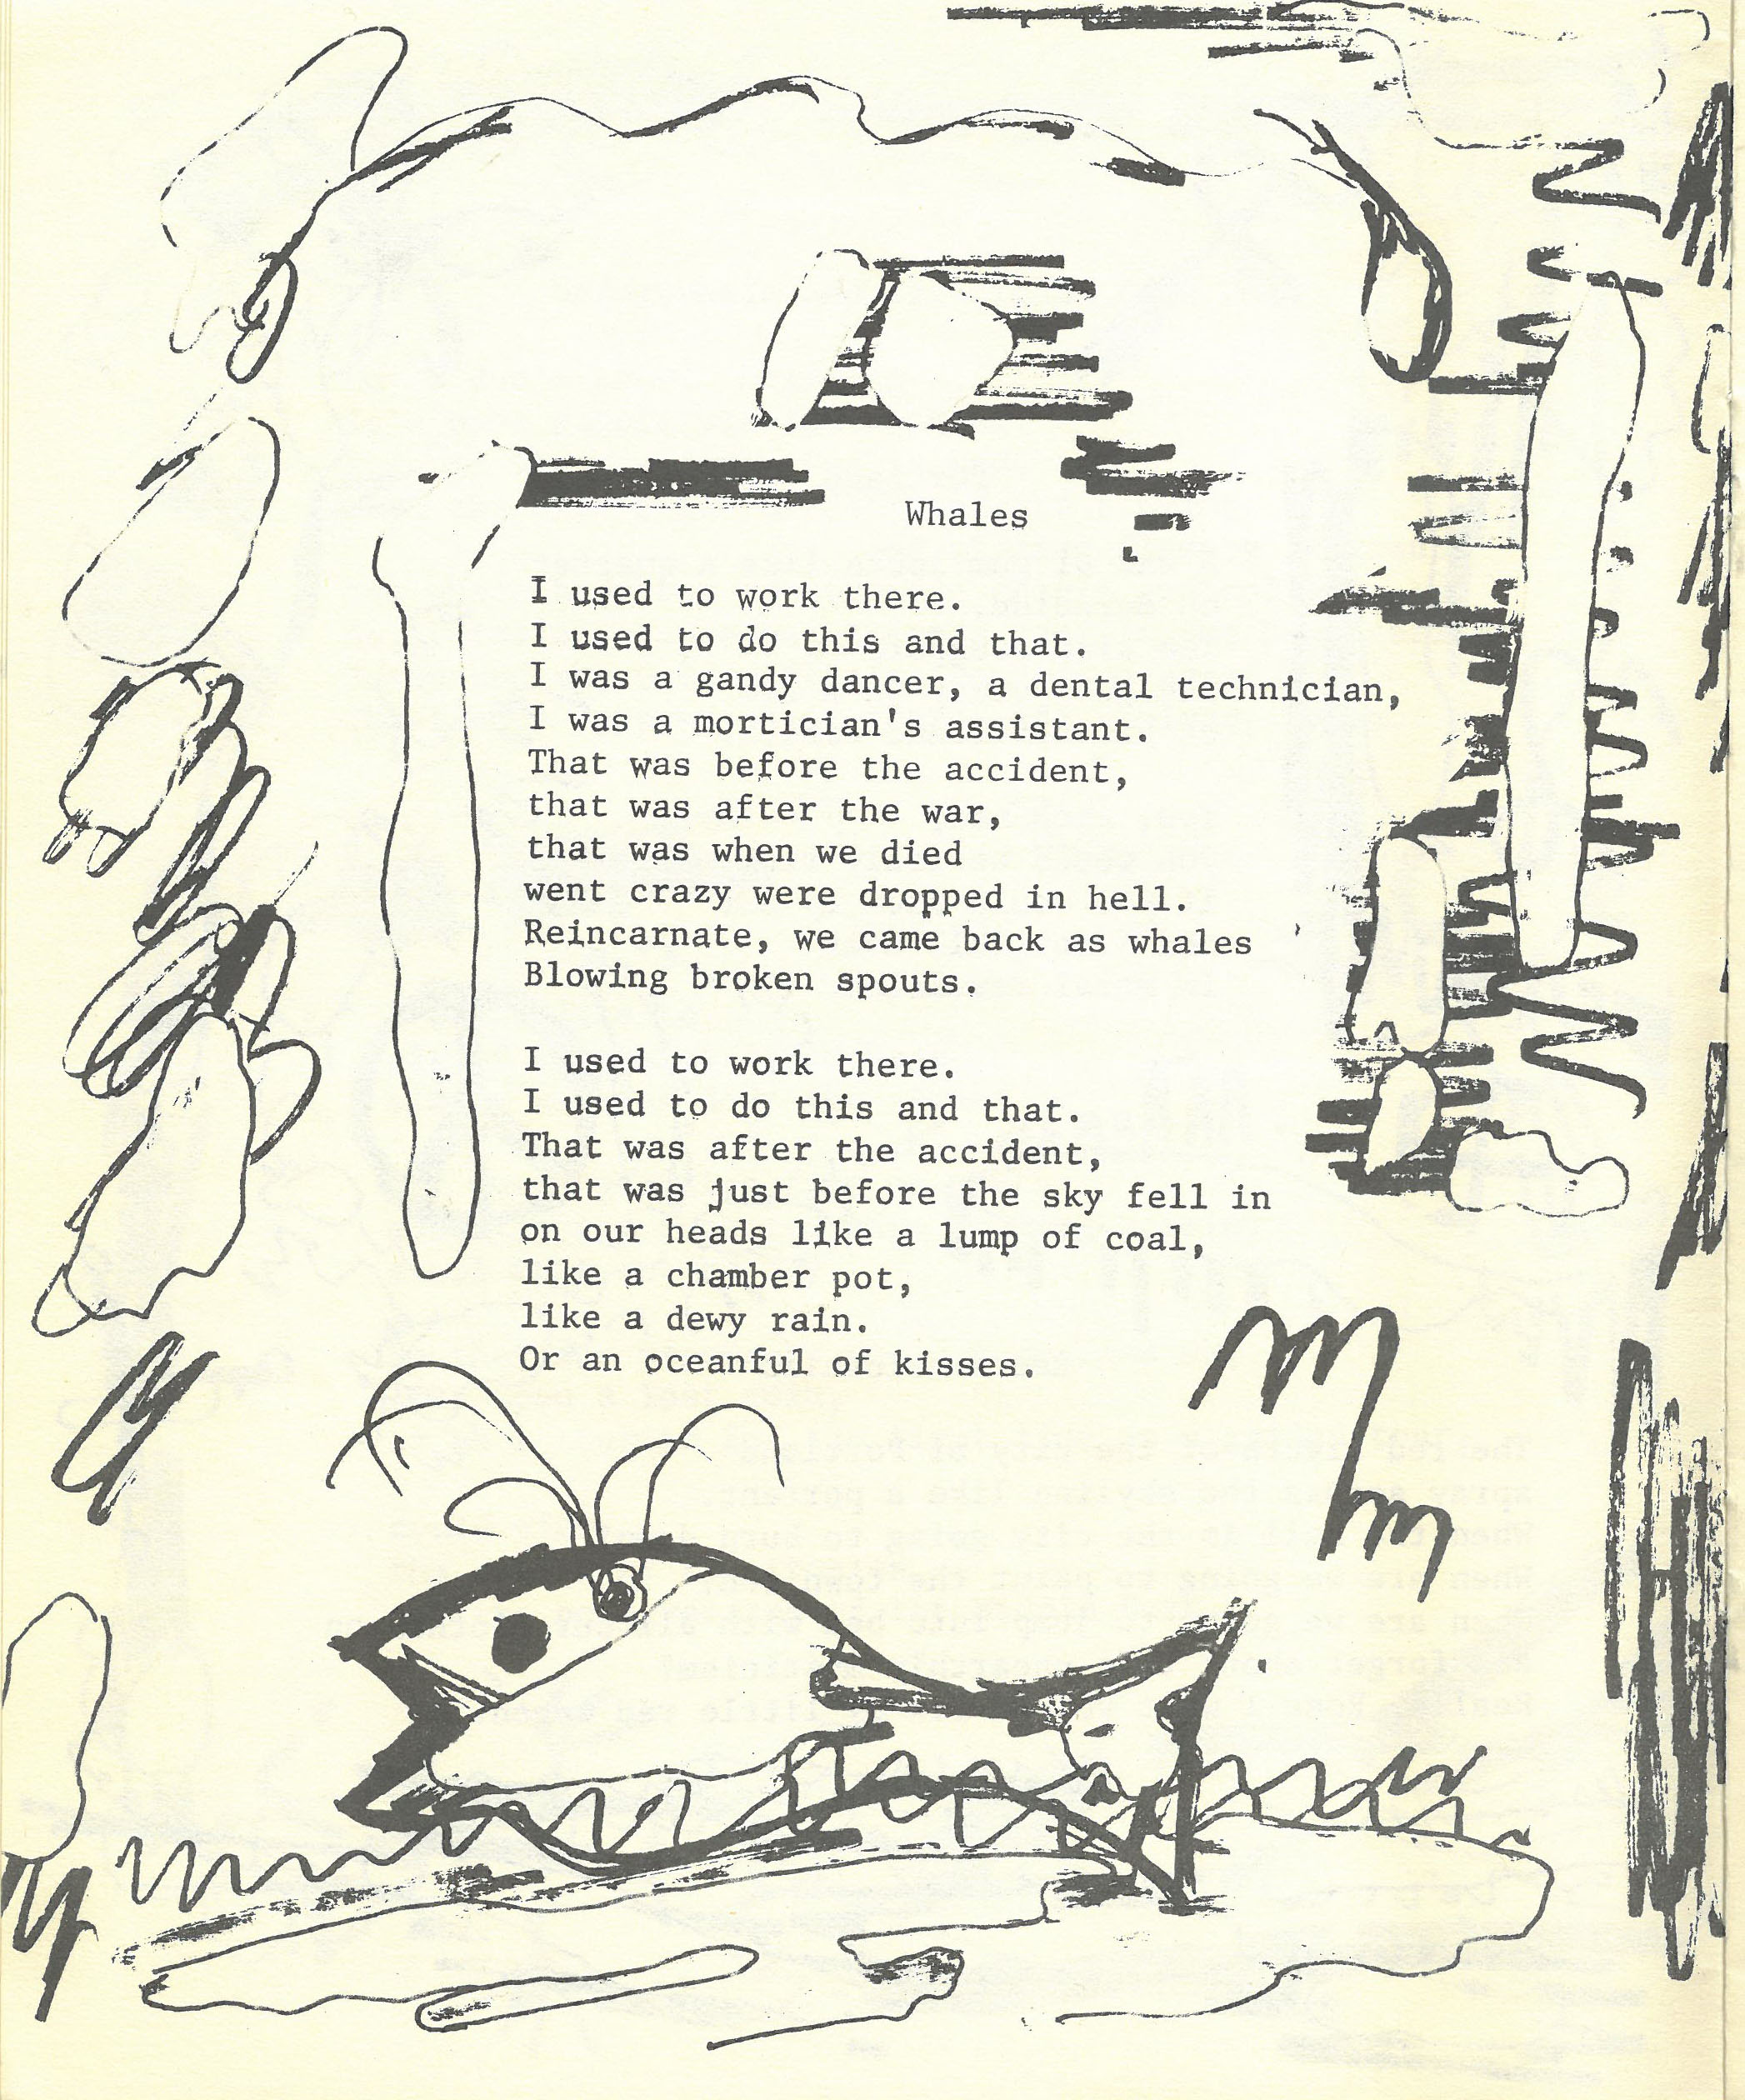 Whales
I used to work there.
I used to do this and that.
I was a gandy dancer, a dental technician,
I was a mortician's assistant.
That was before the accident,
that was after the war,
that was when we died
went crazy were dropped in hell.
Reincarnate, we came back as whales
Blowing broken spouts.
I used to work there.
I used to do this and that.
That was after the accident,
that was just before the sky fell in
on our heads like a lump of coal,
like a chamber pot,
like a dewy rain.
Or an oceanful of kisses.